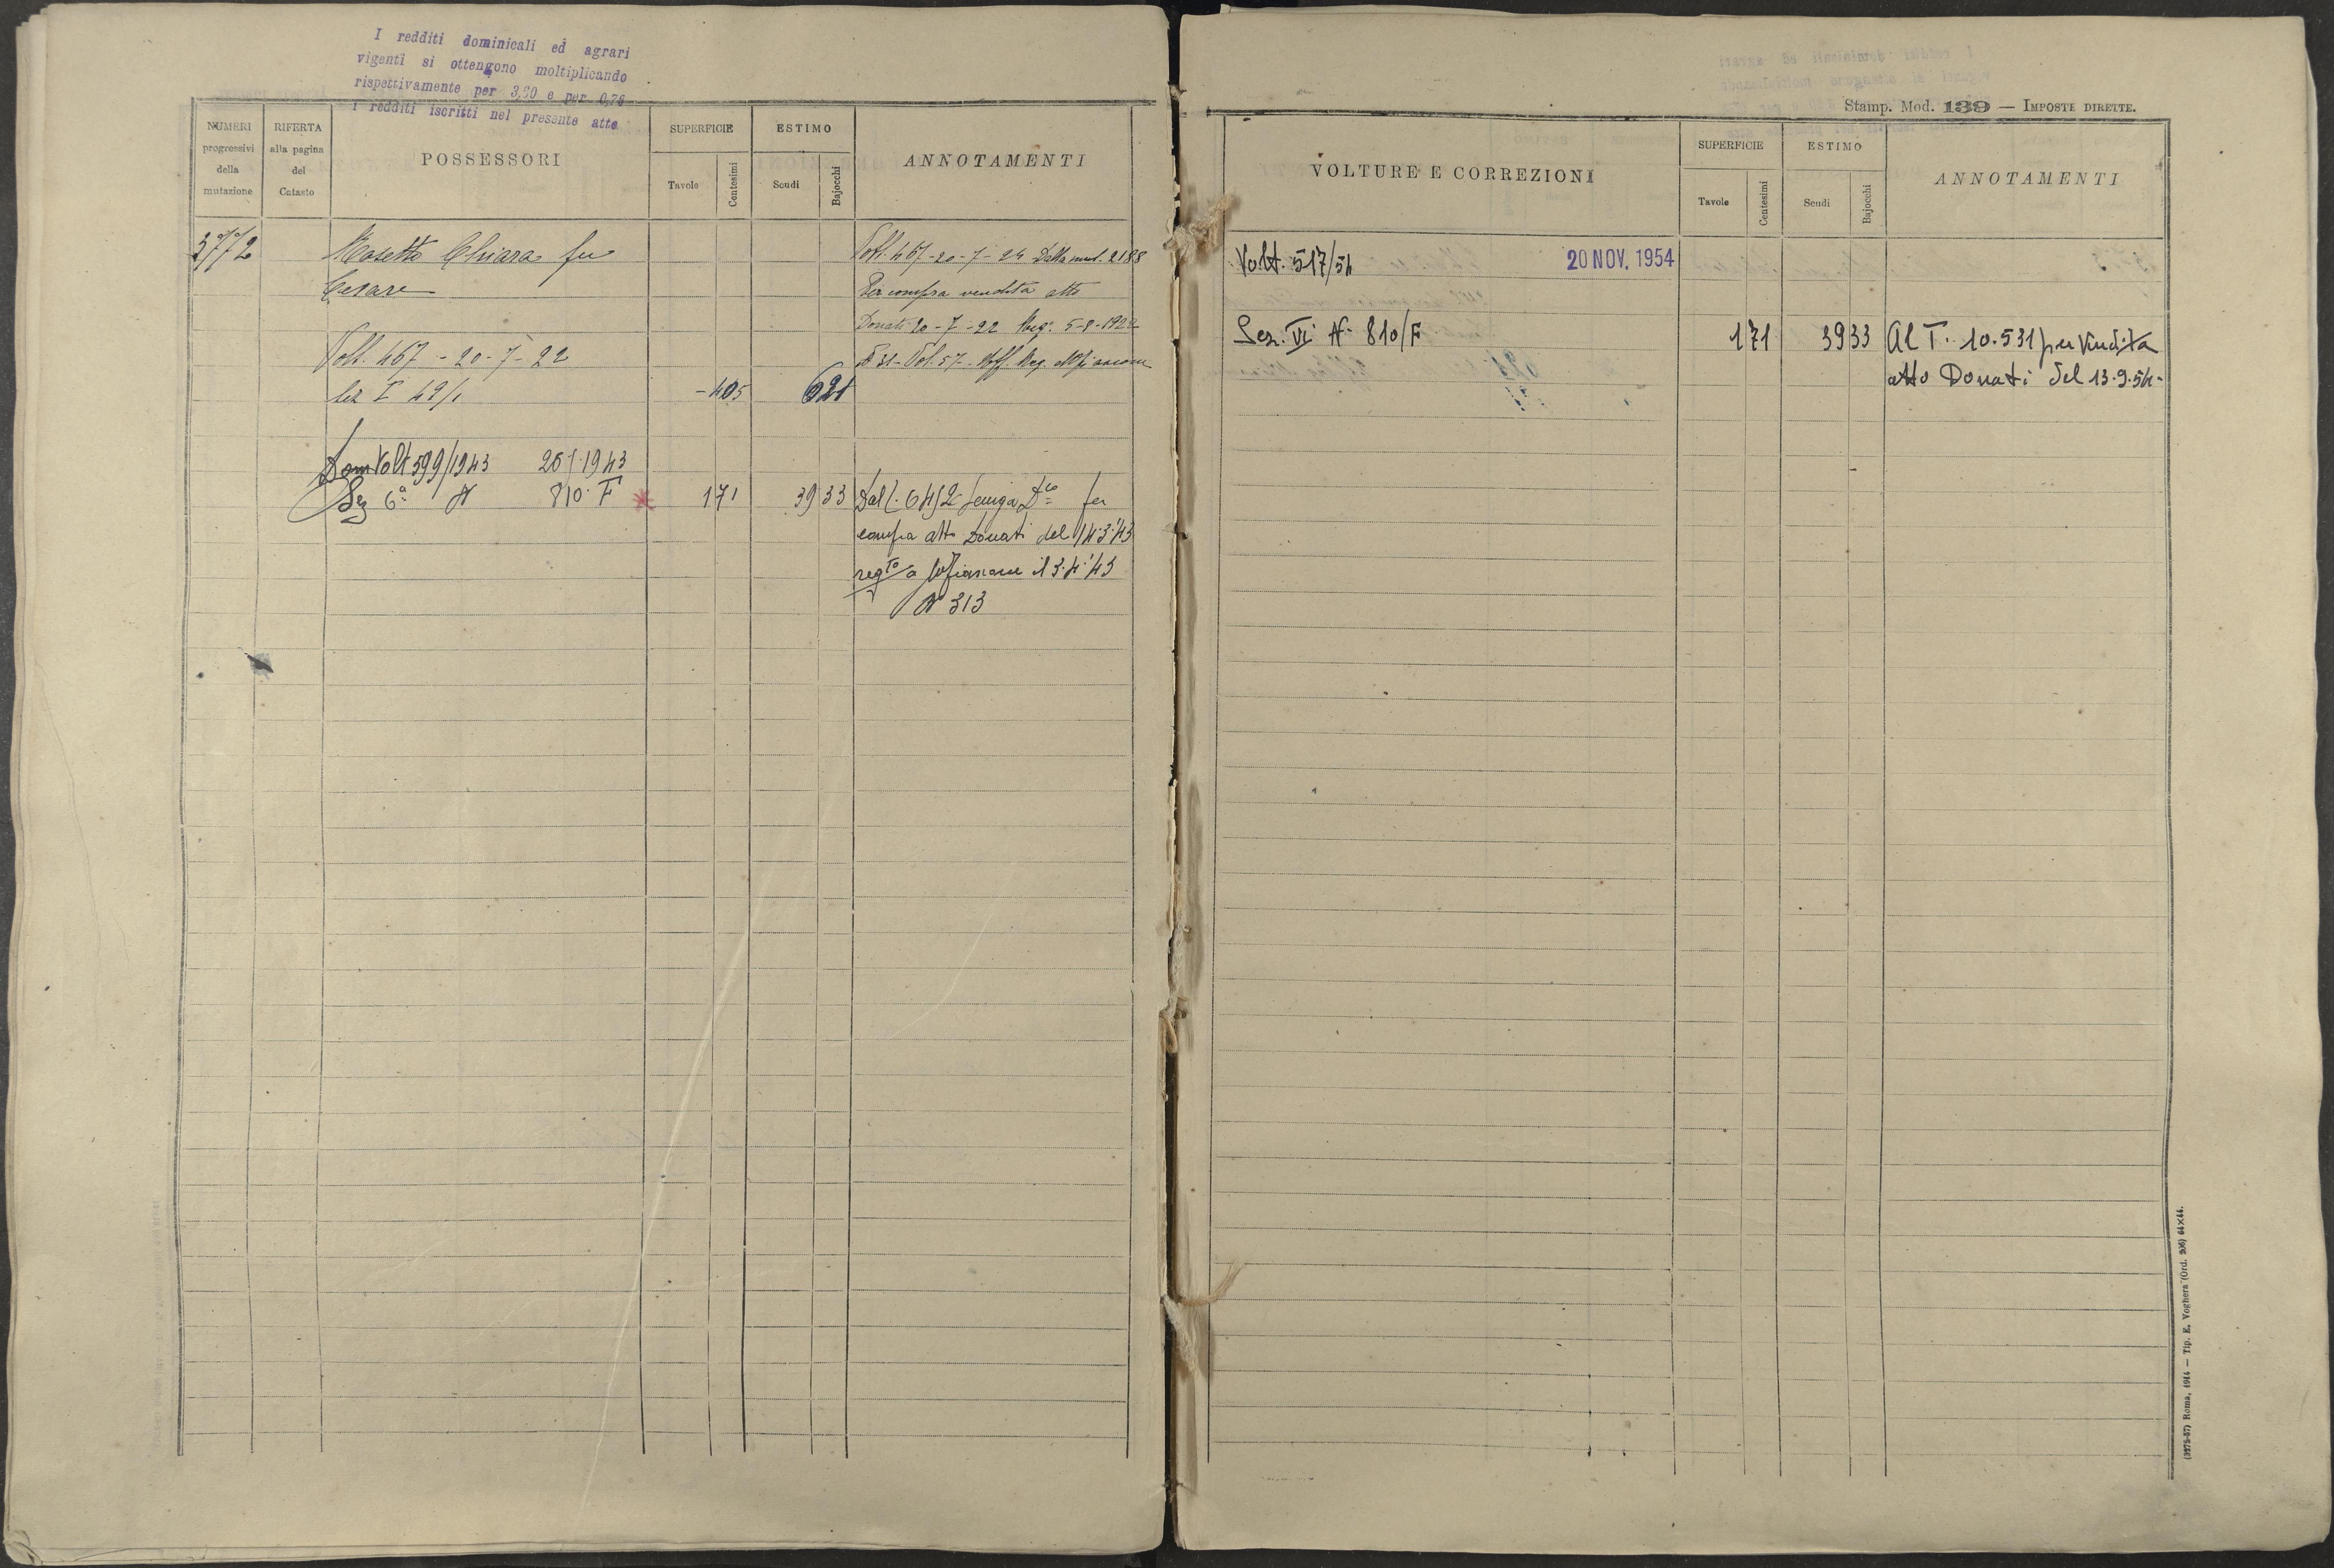 I redditi dominicali ed agrari
vigenti si ottengono moltiplicando
rispettivamente per 3,60 e per 0,76
i redditi iscritti nel presente atto
NUMERI
progressivi
della
mutazione
RIFERTA
alla pagina
del
Catasto
POSSESSORI
SUPERFICIE
Tavole
Centesimi
ESTIMO
Scudi
Bajocchi
ANNOTAMENTI
3772
Chiara fu
Cesare
Volt. 467 - 20-7-22
Sez I 49/1
- 405
621
Volt. 467-20-7-24 Dalla mut. 2188
Per compra vendita atto
Donati 20-7-22 Reg. 5-8-1922
Vol. 57 - Uff. Reg.
Volt 599/1943
Sez 6ª N 810 F
171
39 33
Dal
compra atto Donati del 14.3.'43
regto a il 3.4.'43
N 313
Stamp. Mod. 139 — IMPOSTE DIRETTE.
VOLTURE E CORREZIONI
SUPERFICIE
Tavole
Centesimi
ESTIMO
Scudi
Bajocchi
ANNOTAMENTI
Volt. 517/54
20 NOV. 1954
Sez. VI N. 810/F
171
39 33
Al T. 10.531 per Vendita
atto Donati del 13.9.54-
(3275-57) Roma, 1914 — Tip. E. Voghera (Ord. 206) 64×44.